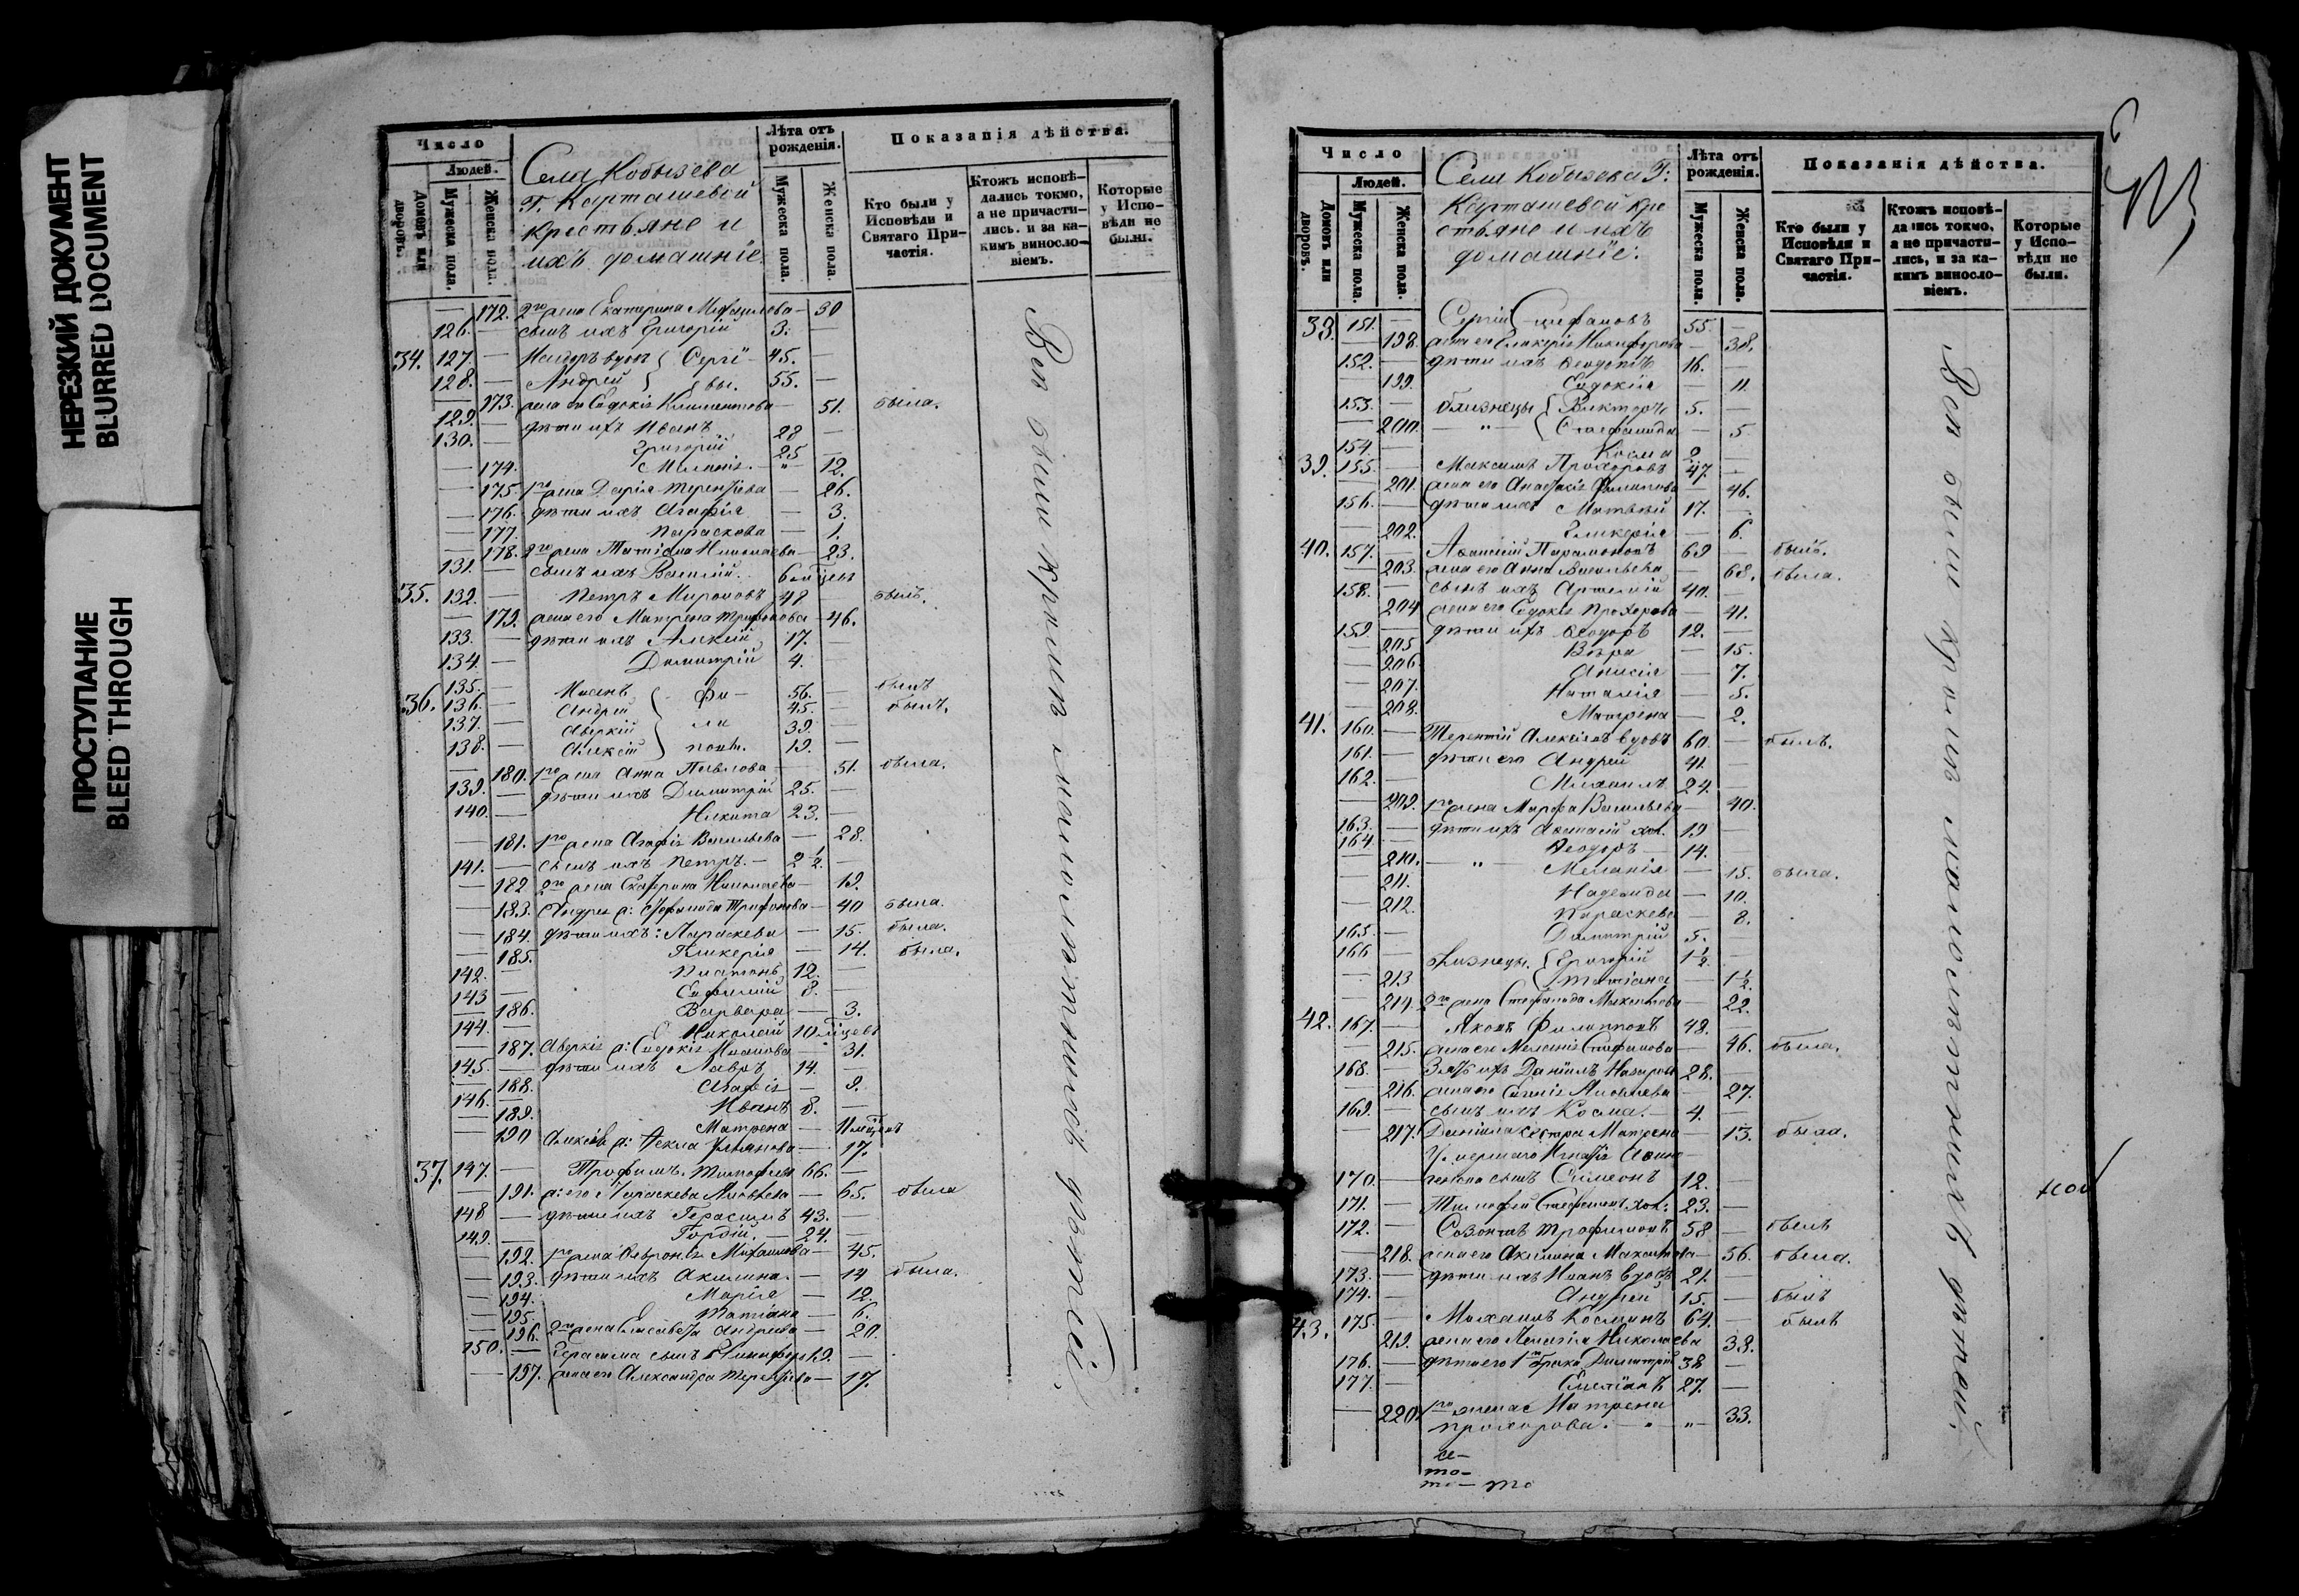 НЕРЕЗКИЙ ДОКУМЕНТ
BLURRED DOCUMENT
ПРОСТУПАНИЕ
BLEED THROUGH
Число
Людей.
Домовъ или дворовъ.
Мужеска пола.
Женска пола.
Села Кобызева
Г. Карташевой
крестьяне и
ихъ домашніе
Лѣта отъ рожденія.
Мужеска пола.
Женска пола.
Показанія дѣйства.
Кто были у Исповѣди и Святаго Причастія.
Ктожъ исповѣдались токмо, а не причастились. и за какимъ винословіемъ.
Которые у Исповѣди не были.
— 172. 2го жена Екатерина — 30
126. — сынъ ихъ Григорій 3. —
34. 127. — вдовъ { Сергі 45. —
128. — Андрей } евы. 55. —
— 173. жена Евдокія Климентова — 51. была.
129. — дѣти ихъ Иванъ 28 —
130. — Григорій 25 —
— 174. Меланія. — " — 12.
— 175. 1го жена Дарія Терентьева — 26.
— 176. дѣти ихъ Агафія — 3.
— 177. Параскова — 1.
— 178. 2го жена Татіана Николаева — 23.
131. — сынъ ихъ Василій. 6 мѣсцевъ
35. 132. — Петръ Мироновъ 48 — былъ.
— 179. жена его Матрена Трифонова — 46.
133. — дѣти ихъ Алексій 17. —
134. — Димитрій 4. —
135. — { Фи — 56. — былъ
36. 136. — Андрей 45. — былъ.
137. — Аверкій } ли 39.
138. — Алексій } повы. 19. —
— 180. 1го жена Анна Павлова — 51. была.
139. — дѣти ихъ Димитрій 25. —
140. — Никита 23. —
— 181. 1го жена Агафія Васильева — 28.
141. — сынъ ихъ Петръ. — 2 1/2. —
— 182 2го жена Екатерина Николаева — 19.
— 183. Андрея ж: Стефанида Трифонова — 40 была.
— 184. дѣти ихъ: Параскева — 15. была.
— 185. Гликерія — 14. была.
142. — Платонъ 12. —
143 — Евфимій 8. —
— 186. Варвара — 3.
144. — Николай 10 мѣсцевъ
— 187. Аверкія ж: Евдокія Иванова — 31.
145. — дѣти ихъ Лавръ 14. —
— 188. Агафія — 9.
146. — Иванъ 8. —
— 189. Матрена — 11 мѣсцевъ
— 190 Алексія ж: Ѳекла Ульянова — 17.
37. 147. — Трофимъ Тимофеевъ 66. —
— 191. ж: его Параскева Яковлева — 65. была
148 — дѣти ихъ Герасимъ 43. —
149. — Гордій. — 24. —
— 192. 1го жена Февронія Михайлова — 45.
— 193. дѣти ихъ Акилина — 14 была.
— 194. Марія — 12.
— 195. Татіана — 6.
— 196. 2го жена Елисавета Андреева — 20.
150. — Герасима сынъ Никифоръ 19. —
— 197. жена его Александра Терентьева — 17.
Вси были кромѣ малолѣтнихъ дѣтей.
Число
Людей.
Домовъ или дворовъ.
Мужеска пола.
Женска пола.
Села Кобызева Г:
Карташевой кре
стьяне и ихъ
домашніе:
Лѣта отъ рожденія.
Мужеска пола.
Женска пола.
Показанія дѣйства.
Кто были у Исповѣди и Святаго Причастія.
Ктожъ исповѣдались токмо, а не причастились, и за какимъ винословіемъ.
Которые у Исповѣди не были.
33. 151. — Сергій Стефановъ 55. —
— 198. жена его Гликерія Никифорова — 38.
152. — дѣти ихъ Ѳеодотъ 16. —
— 199. Евдокія — 11.
153. — близнецы { Викторъ 5. —
— 200. — " — { Стефанида — 5.
154. — Косма 2 —
39. 155. — Максимъ Прохоровъ 47. —
— 201. жена его Анастасія Филипова — 46.
156. — дѣти ихъ Матвѣй 17. —
— 202. Гликерія — 6.
40. 157. — Аѳанасій Парамоновъ 69 — былъ.
— 203. жена его Анна Васильева — 68. была.
158. — сынъ ихъ Артемій 40. —
— 204 жена его Евдокія Прохорова — 41.
159. — дѣти ихъ Ѳеодоръ 12. —
— 205 Вѣра — 15.
— 206. Анисія — 7.
— 207. Наталія — 5.
— 208. Матрена — 2.
41. 160. — Терентій Алексіевъ вдовъ 60. — былъ.
161. — дѣти его Андрей 41. —
162. — Михаилъ 24. —
— 209. 1го жена Марфа Васильева — 40.
163. — дѣти ихъ Аѳанасій хол. 19 —
164. — Ѳеодоръ — 14. —
— 210. — " — Меланія — 15. была.
— 211. Надежда — 10.
— 212. Параскева — 8.
165. — Димитрій 5. —
166 — близнецы. { Григорій 1 1/2. —
— 213 { Татіана — 1 1/2.
— 214. 2го жена Стефанида — 22.
42. 167. — Яковъ Филипповъ 48. —
— 215. жена его Меланія Стефанова — 46. была.
168. — Зять ихъ Даніилъ Назаровъ 28. —
— 216. жена его Яковлева — 27.
169. — сынъ ихъ Косма. — 4. —
— 217. Даніила сестра Матрена — 13. была.
Умершаго Игнатія
170. — сынъ Симеонъ 12. —
171. — Тимофей Стефановъ хол. 23. —
172. — Созонтъ Трофимовъ 58 — былъ
— 218. жена его Акилина — 56. была.
173. — дѣти ихъ Иванъ вдовъ 21. —
174. — Андрей 15. — былъ
43. 175. — Михаилъ Косминъ 64. — былъ
219. жена его Пелагія Николаева 33.
176. — дѣти его 1го брака Димитрій 38 —
177. — Емеліанъ 27. —
— 220. 1го жена Матрена
Прохорова. — " — " — 33.
се—
то—
то — то
Вси были кромѣ малолѣтнихъ дѣтей.